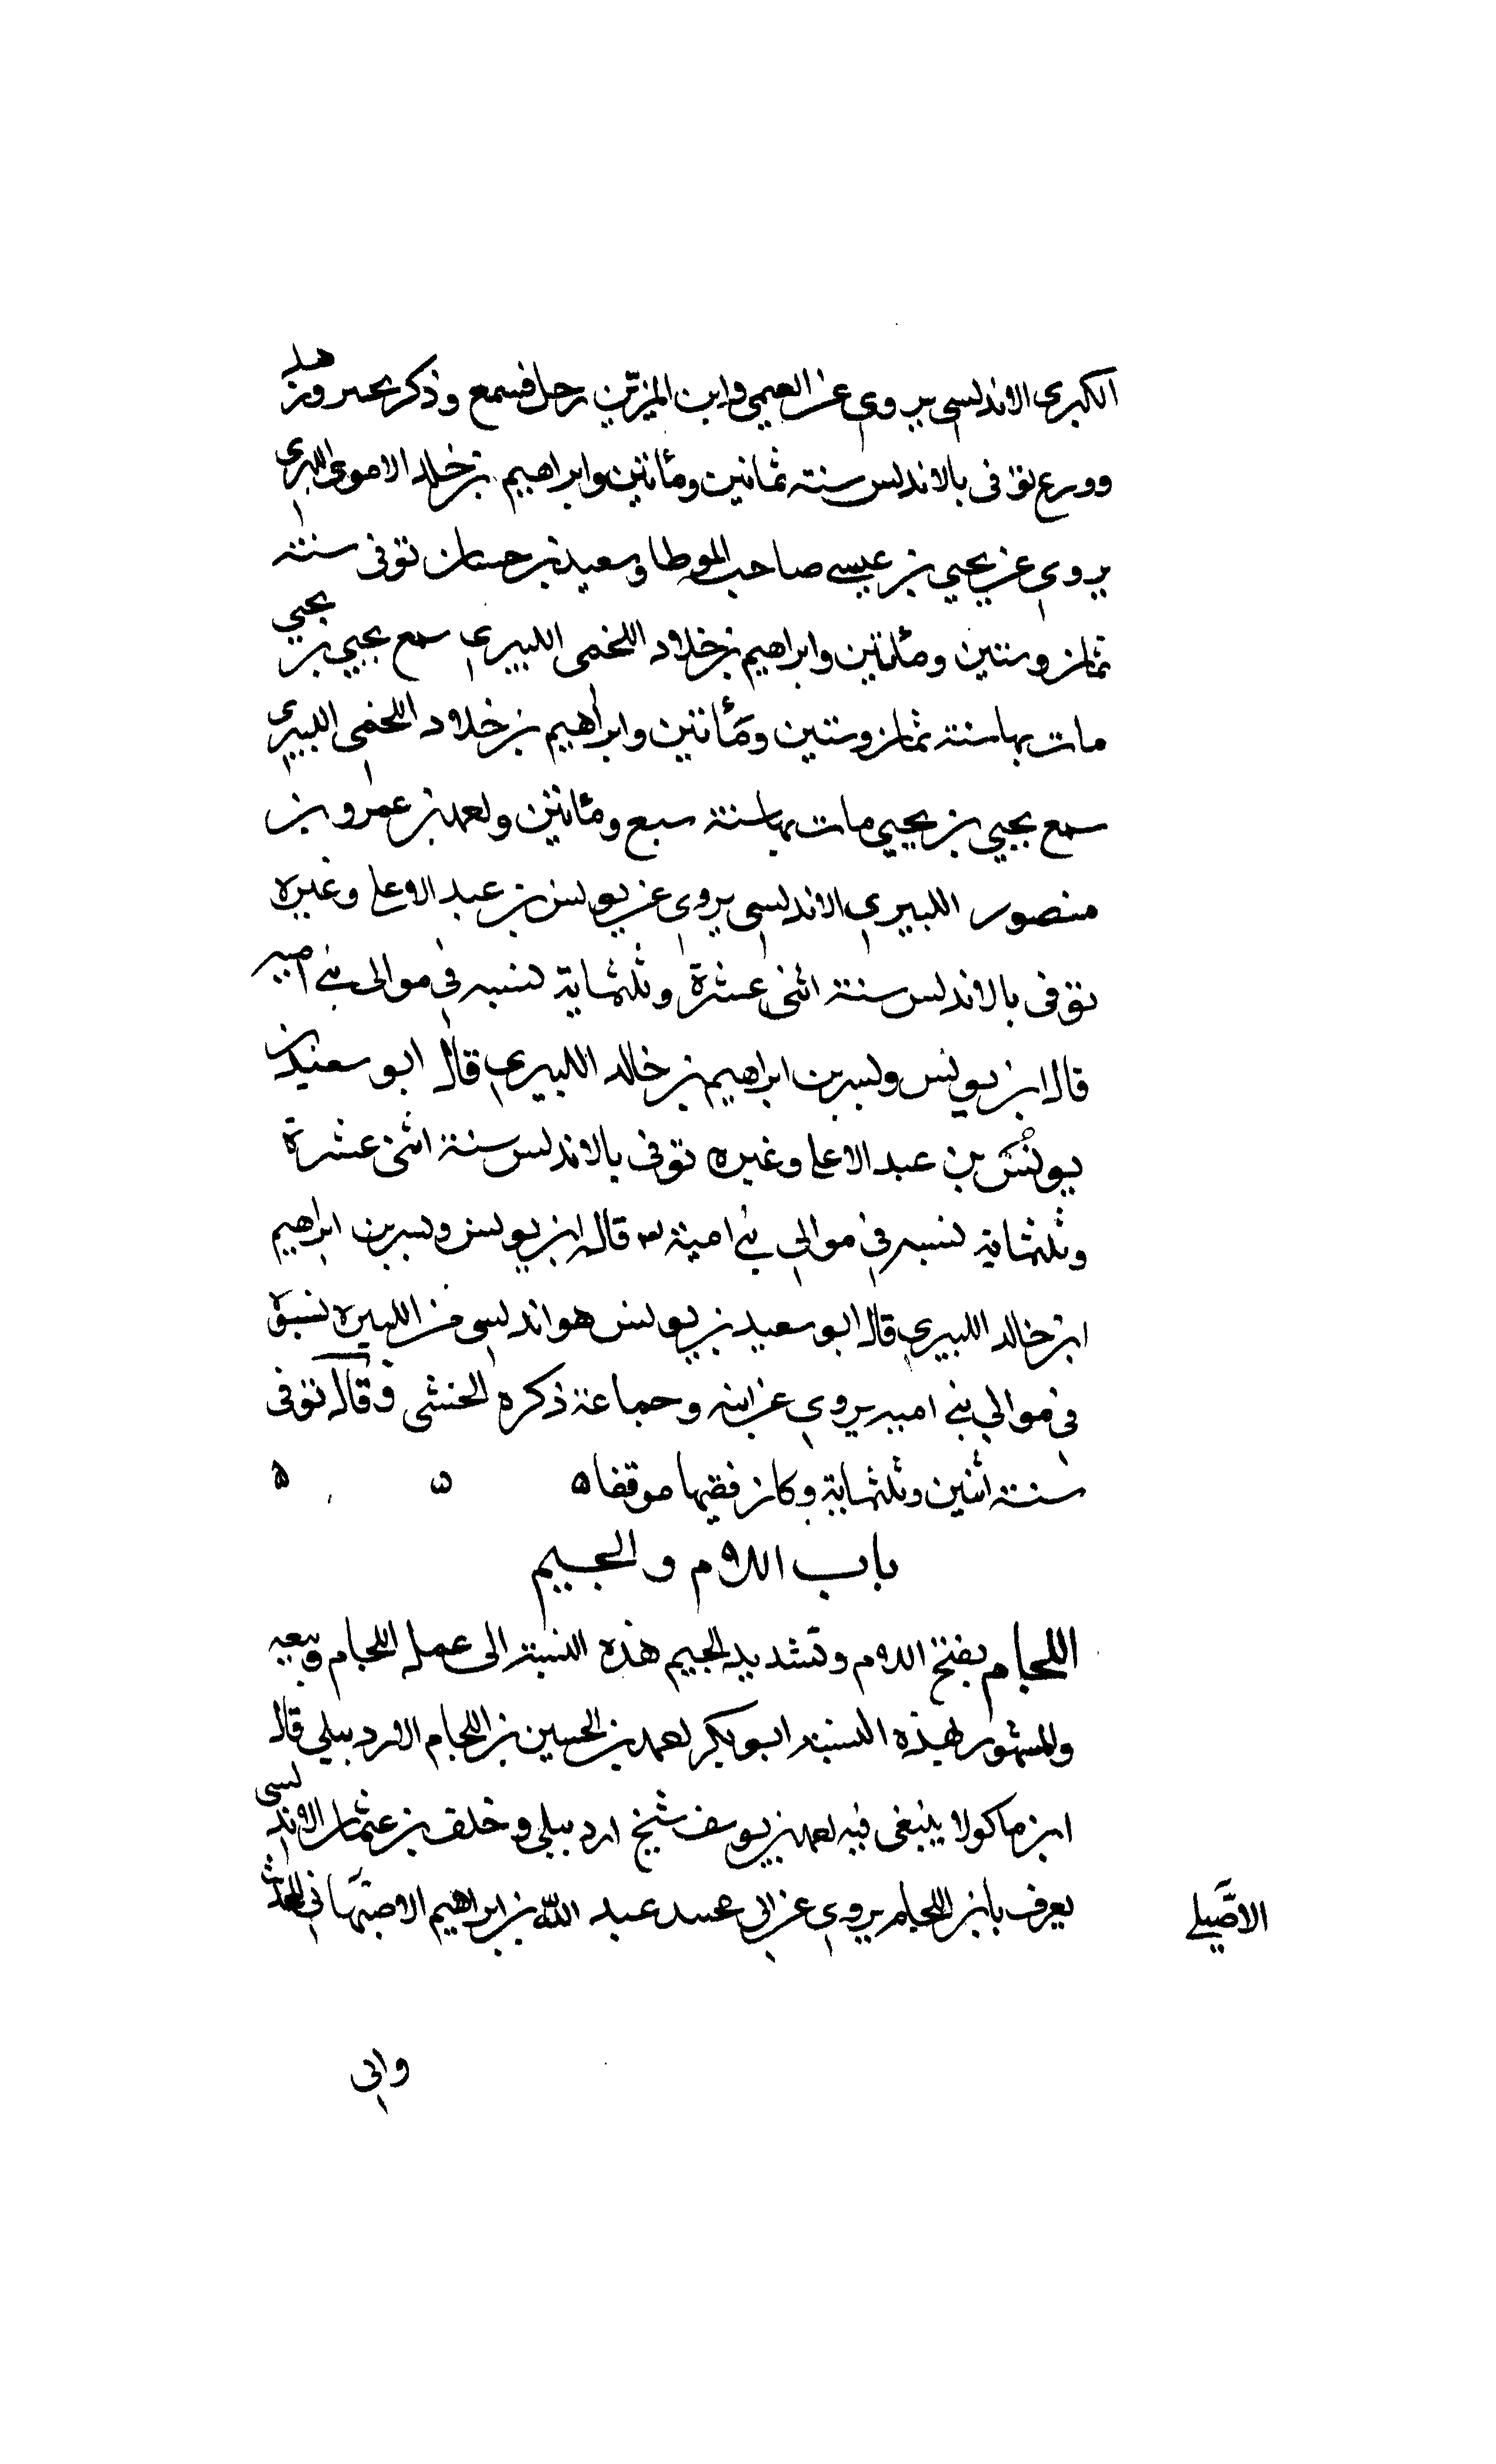 الكبرى الاندلسى يروى عن العيمى وابن المزين رحل فسمع وذكر بخير وزهد
وورع توفى بالاندلس سنة ثمانين ومائتين وابراهيم بن خلد الاموى اللبيرى
يروى عن يحيى بن عيسى صاحب الموطا وسعيد بن حسان توفى سنة
ثمان وستين ومائتين وابراهيم بن خلاد اللخمى اللبيرى سمع يحيى بن يحيى
مات بها سنة ثمان وستين ومائتين وابراهيم بن خلاد اللخمى اللبيرى
سمع يحيى بن يحيى مات بها سنة سبع ومائتين واحمد بن عمرو بن
منصور اللبيرى الاندلسى يروى عن يونس بن عبد الاعلى وغيره
توفى بالاندلس سنة اثنى عشرة وثلثماية نسبه فى موالى بنى اميه
قال ابن يونس وليبرين ابراهيم بن خالد اللبيرى قال ابو سعيد بن
يونس بن عبد الاعلى وغيره توفى بالاندلس سنة اثنى عشرة
وثلثماية نسبه فى موالى بنى امية قال ابن يونس وليبرين ابراهيم
ابن خالد اللبيرى قال ابو سعيد بن يونس هو اندلسى من اللبيره نسبه
فى موالى بنى اميه يروى عن ابيه وجماعة ذكره الخشنى وقال توفى
سنة اثنين وثلثماية وكان فقيها موقفا ه ه ه
باب اللام والجيم
اللجام بفتح اللام وتشديد الجيم هذه النسبة الى عمل اللجام وبيعه
والمشهور بهذه النسبة ابو بكر احمد بن الحسين بن اللجام الاردبيلى قال
ابن ماكولا ينبغى فيه احمد بن يوسف شيخ اردبيلى وخلف بن عثمان الاندلسى
يعرف بابن اللجام يروى عن ابى محمد عبد الله بن ابراهيم الاصبهانى المحدث
الاصيلى
وابى